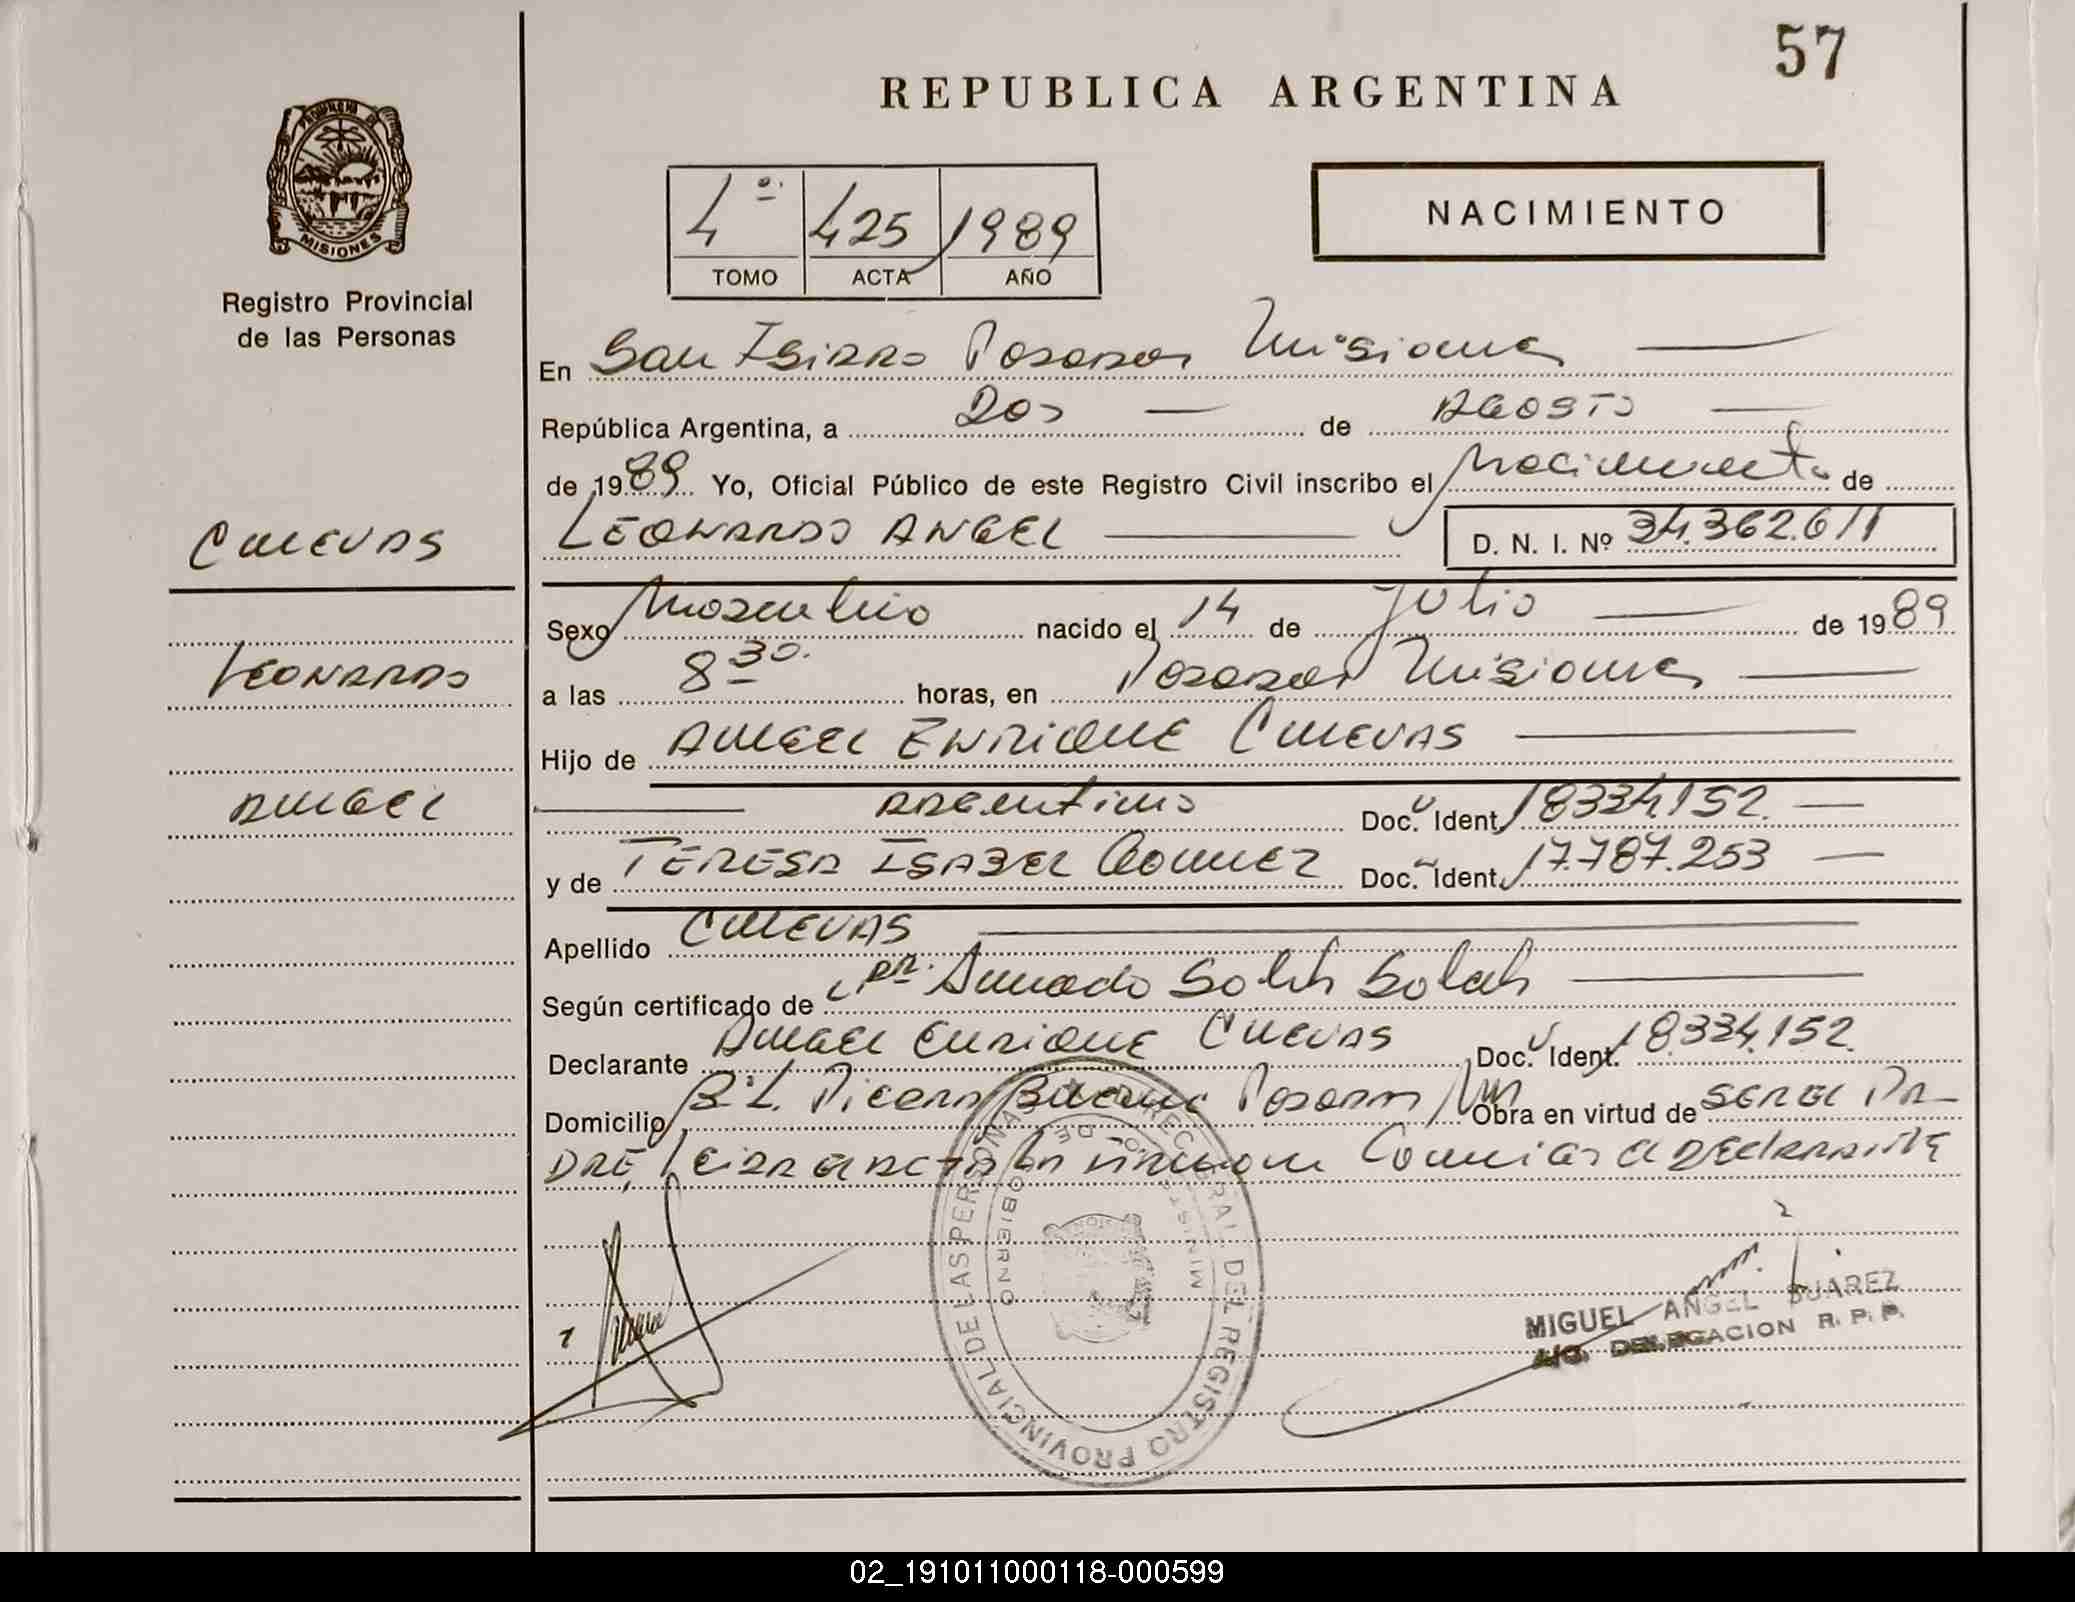 57
REPUBLICA ARGENTINA
PROVINCIA DE
MISIONES
Registro Provincial
de las Personas
4º 425 1989
TOMO ACTA AÑO
NACIMIENTO
En San Isidro Posadas Misiones
República Argentina, a Dos de Agosto
de 1989 Yo, Oficial Público de este Registro Civil inscribo el Nacimiento de
LEONARDO ANGEL D. N. I. Nº 34.362.611
CUEVAS
LEONARDO
ANGEL
Sexo Masculino nacido el 14 de Julio de 1989
a las 8 30 horas, en Posadas Misiones
Hijo de ANGEL ENRIQUE CUEVAS
Argentino Doc. Ident. 18334.152
y de TERESA ISABEL Gomez Doc. Ident. 17.787.253
Apellido CUEVAS
Según certificado de Dr. Amado
Declarante Angel Enrique Cuevas Doc. Ident. 18.334.152
Domicilio Posadas Mnes Obra en virtud de SER EL PA-
DRE, Leida el acta la firma conmigo el declarante
DIRECC. GRAL. DEL REGISTRO PROVINCIAL DE LAS PERSONAS
MINISTERIO DE GOBIERNO
MIGUEL ANGEL SUAREZ
A/C. DELEGACION R. P. P.
02_191011000118-000599